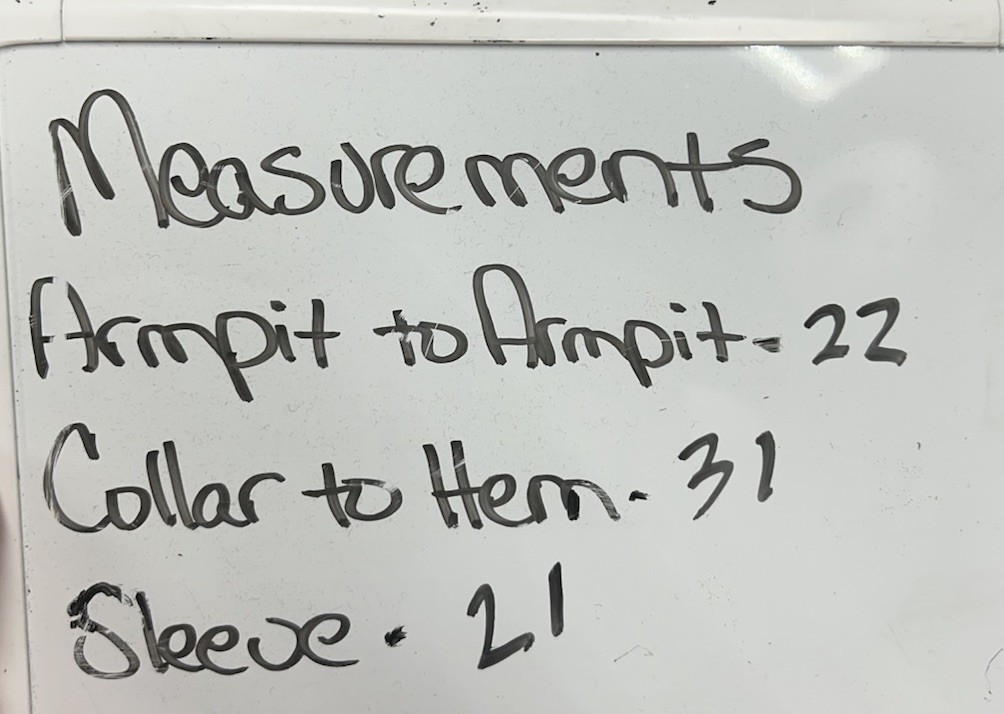 Measurements
Armpit to Armpit - 22
Collar to Hem - 31
Sleeve - 21